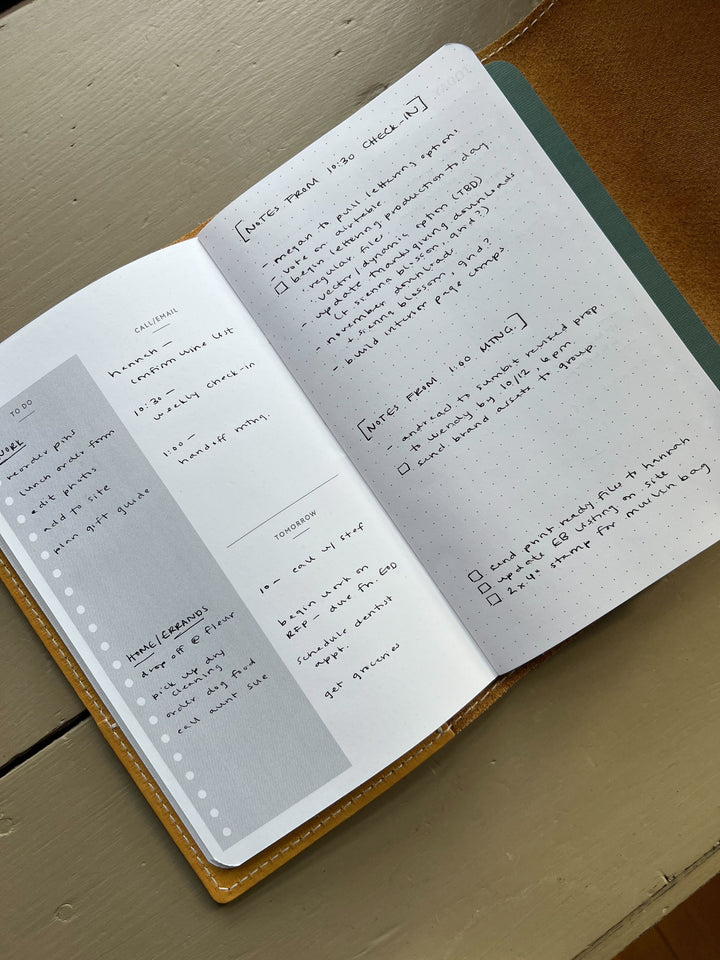 TO DO
WORK
reorder pins
lunch order form
edit photos
add to site
plan gift guide
HOME/ERRANDS
drop off @ fleur
pick up dry
cleaning
order dog food
call aunt sue
CALL/EMAIL
hannah –
confirm wine list
10:30 –
weekly check-in
1:00 –
handoff mtng.
TOMORROW
10 – call w/ stef
begin work on
RFP – due fri. EOD
schedule dentist
appt.
get groceries
[NOTES FROM 10:30 CHECK-IN]
- megan to pull lettering options
- vote on airtable
begin lettering production today
· regular files
· vector/dynamic option (TBD)
- update thanksgiving downloads
(+ sienna blossom, grid?)
- november download
+ sienna blossom, grid?
- build interior page comps
[NOTES FROM 1:00 MTNG.]
- andrea to sumbit revised prop.
to wendy by 10/12, 6pm
send brand assets to group.
send print ready files to hannah
update EB listing on site
2x4" stamp for muslin bag